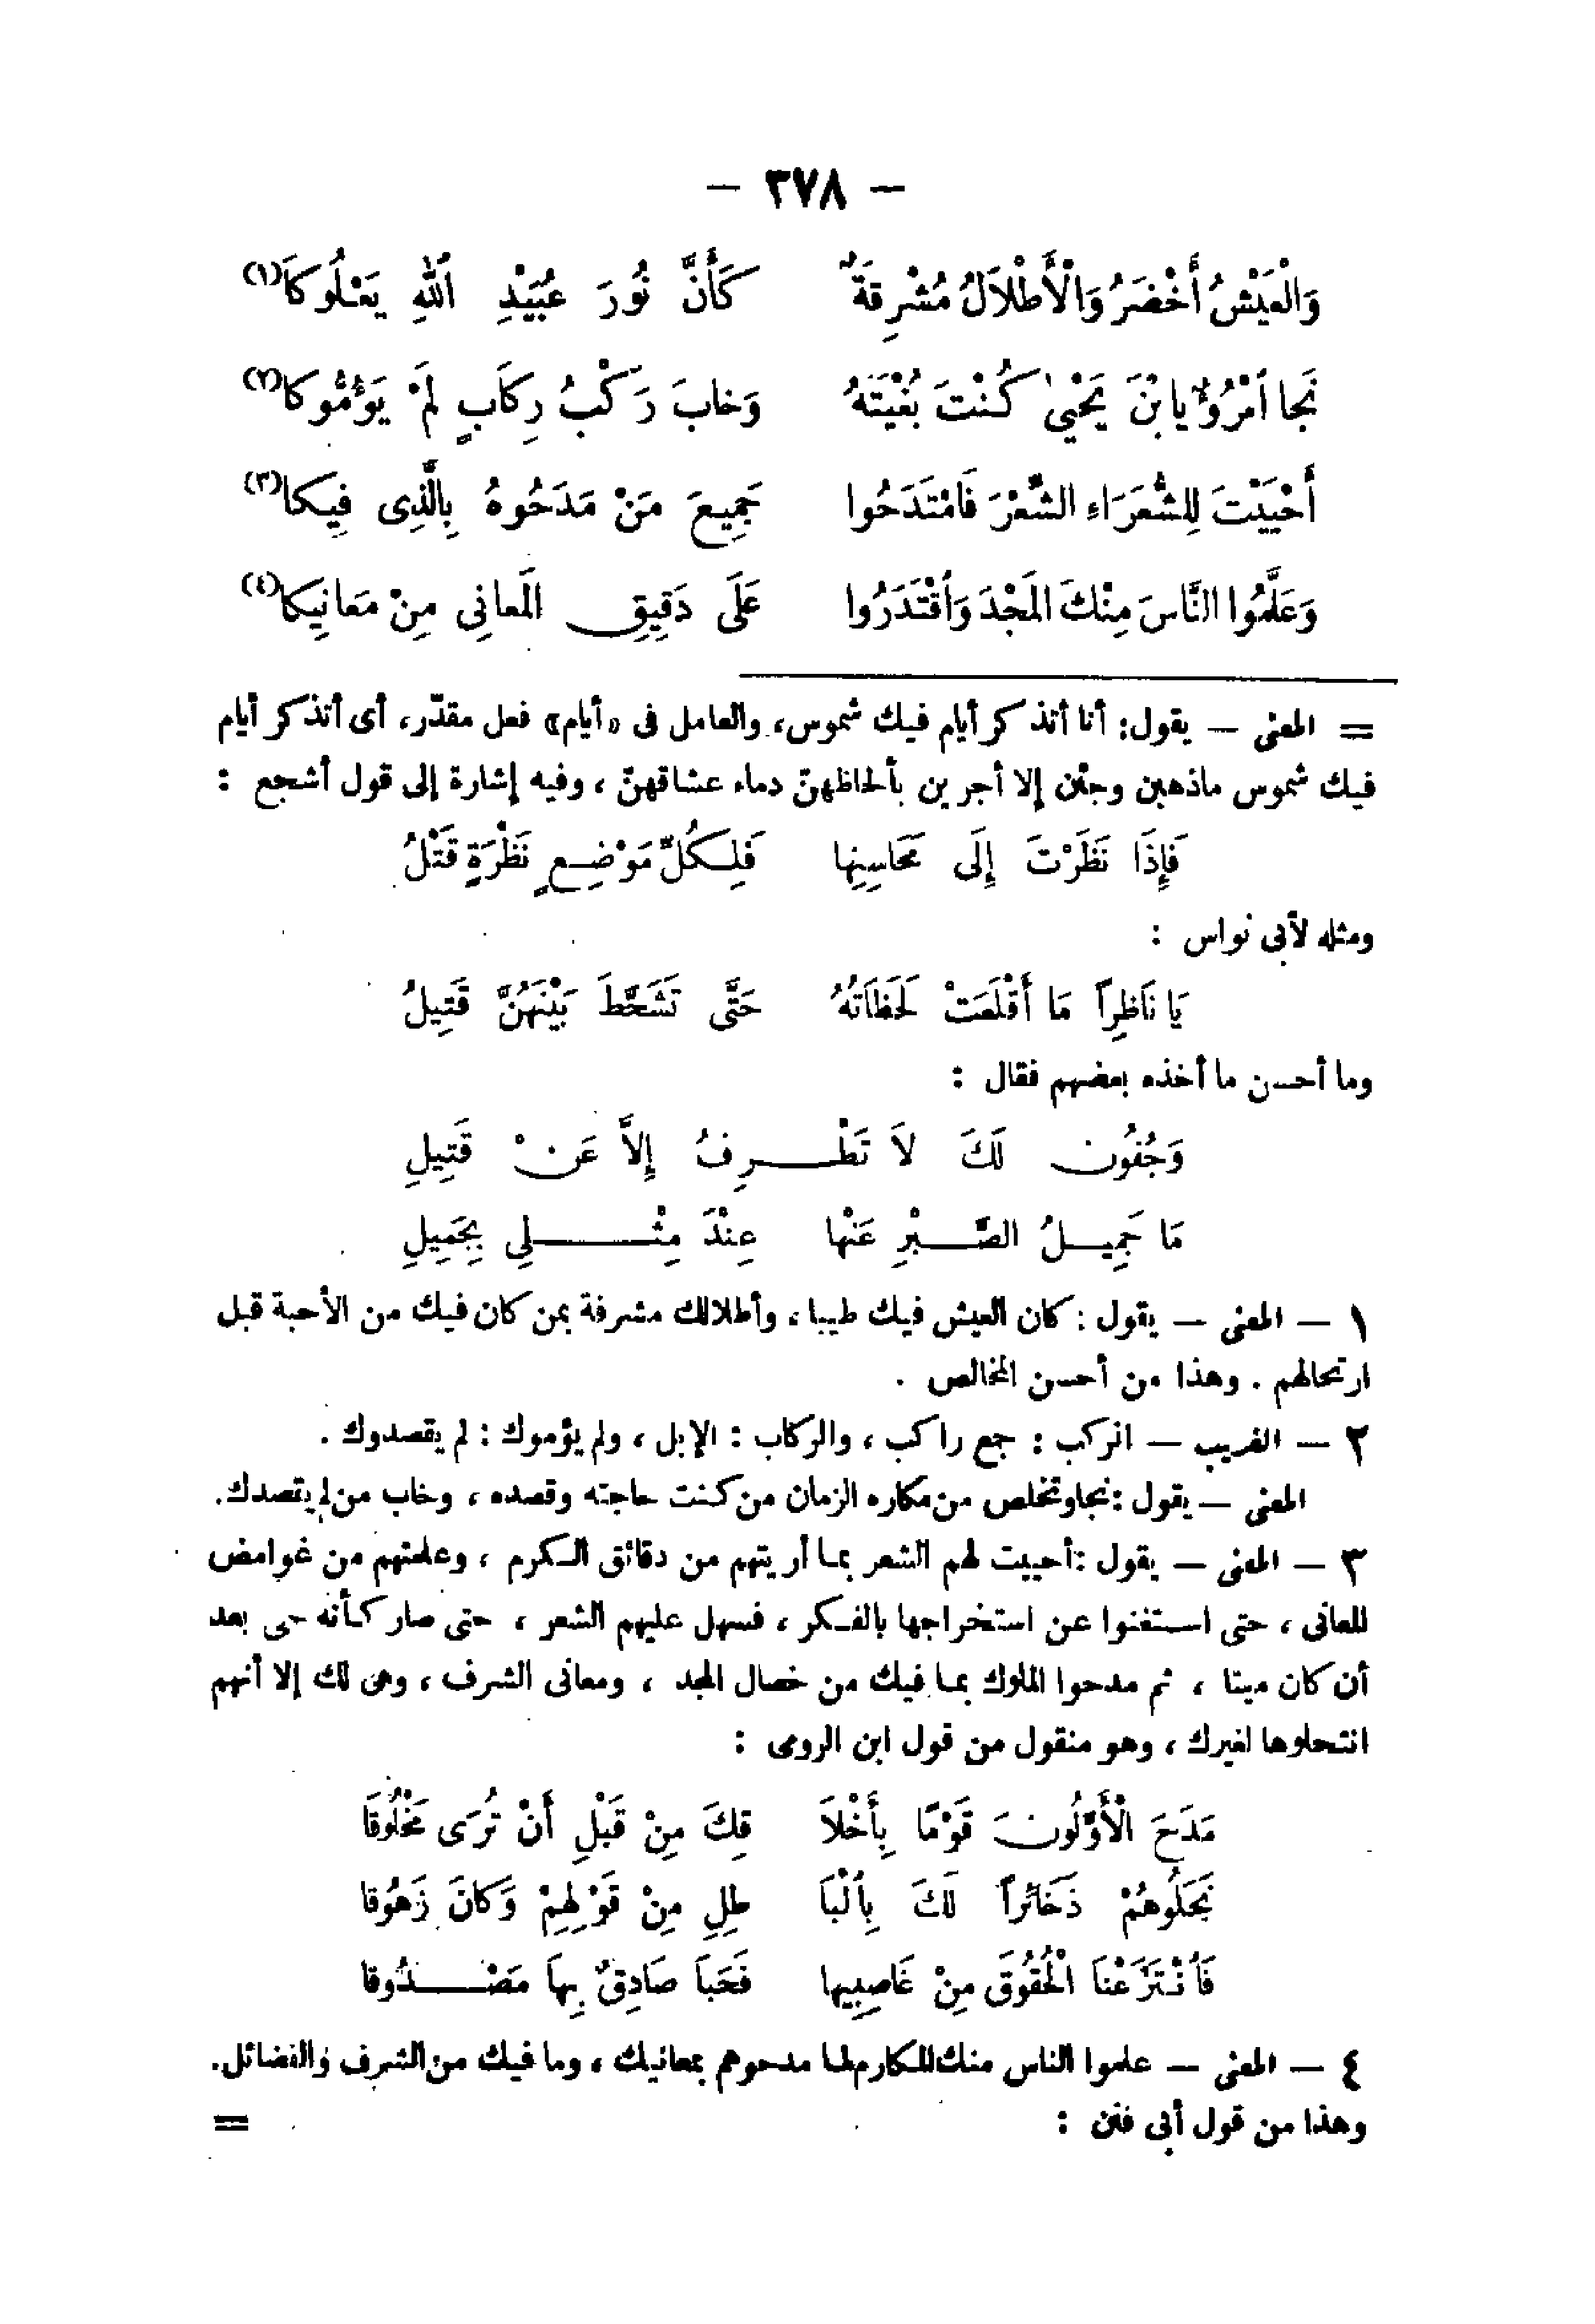 — ٣٧٨ —
وَالْعَيْشُ أَخْضَرُ وَالْأَطْلَالُ مُشْرِقَةٌ كَأَنَّ نُورَ عُبَيْدِ اللهِ يَعْلُوكَا(١)
نَجا امْرُؤٌ يا بْنَ يَحْيىٰ كُنْتَ بُغْيَتَهُ وَخابَ رَكْبُ رِكَابٍ لَمْ يَؤُمُّوكا(٢)
أَحْيَيْتَ لِلشُّعَرَاءِ الشِّعْرَ فَامْتَدَحُوا جَمِيعَ مَنْ مَدَحُوهُ بِالَّذِى فِيكا(٣)
وَعَلَّمُوا النَّاسَ مِنْكَ المَجْدَ وَاقْتَدَرُوا عَلَى دَقِيقِ المَعانِى مِنْ مَعانِيكا(٤)
= المعنى — يقول: أنا أتذكر أيام فيك شموس، والعامل فى «أيام» فعل مقدّر، أى أتذكر أيام
فيك شموس ماذهبن وجئن إلا أجرين بألحاظهنّ دماء عشاقهنّ ، وفيه إشارة إلى قول أشجع :
فَإِذَا نَظَرْتَ إِلَى مَحَاسِنِها فَلِكُلِّ مَوْضِعِ نَظْرَةٍ قَتْلُ
ومثله لأبى نواس :
يَا نَاظِراً مَا أَقْلَعَتْ لَحَظَاتُهُ حَتَّى تَشَحَّطَ بَيْنَهُنَّ قَتِيلُ
وما أحسن ما أخذه بعضهم فقال :
وَجُفُون لَكَ لاَ تَطْرِفُ إِلاَّ عَنْ قَتِيلِ
مَا جَمِيلُ الصَّبْرِ عَنْها عِنْدَ مِثْلِى بِجَمِيلِ
١ — المعنى — يقول : كان العيش فيك طيبا ، وأطلالك مشرقة بمن كان فيك من الأحبة قبل
ارتحالهم . وهذا من أحسن المخالص .
٢ — الغريب — الركب : جمع راكب ، والركاب : الإبل ، ولم يؤموك : لم يقصدوك .
المعنى — يقول : نجا وتخلص من مكاره الزمان من كنت حاجته وقصده ، وخاب من لم يقصدك.
٣ — المعنى — يقول : أحييت لهم الشعر بما أريتهم من دقائق الكرم ، وعلمتهم من غوامض
المعانى ، حتى استغنوا عن استخراجها بالفكر ، فسهل عليهم الشعر ، حتى صار كأنه حى بعد
أن كان ميتا ، ثم مدحوا الملوك بما فيك من خصال المجد ، ومعانى الشرف ، وهى لك إلا أنهم
انتحلوها لغيرك ، وهو منقول من قول ابن الرومى :
مَدَحَ الْأَوَّلُونَ قَوْمًا بِأَخْلاَ قِكَ مِنْ قَبْلِ أَنْ تُرَى مَخْلُوقَا
نَحَلُوهُمْ ذَخَائراً لَكَ بِالْبَا طِلِ مِنْ قَوْلِهِمْ وَكانَ زَهُوقا
فَانْتَزَعْنَا الْحُقُوقَ مِنْ غَاصِبِيها فَحَبَا صَادِقٌ بِهاَ مَصْدُوقا
٤ — المعنى — علموا الناس منك المكارم لما مدحوهم بمعانيك ، وما فيك من الشرف والفضائل.
وهذا من قول أبى فنن : =